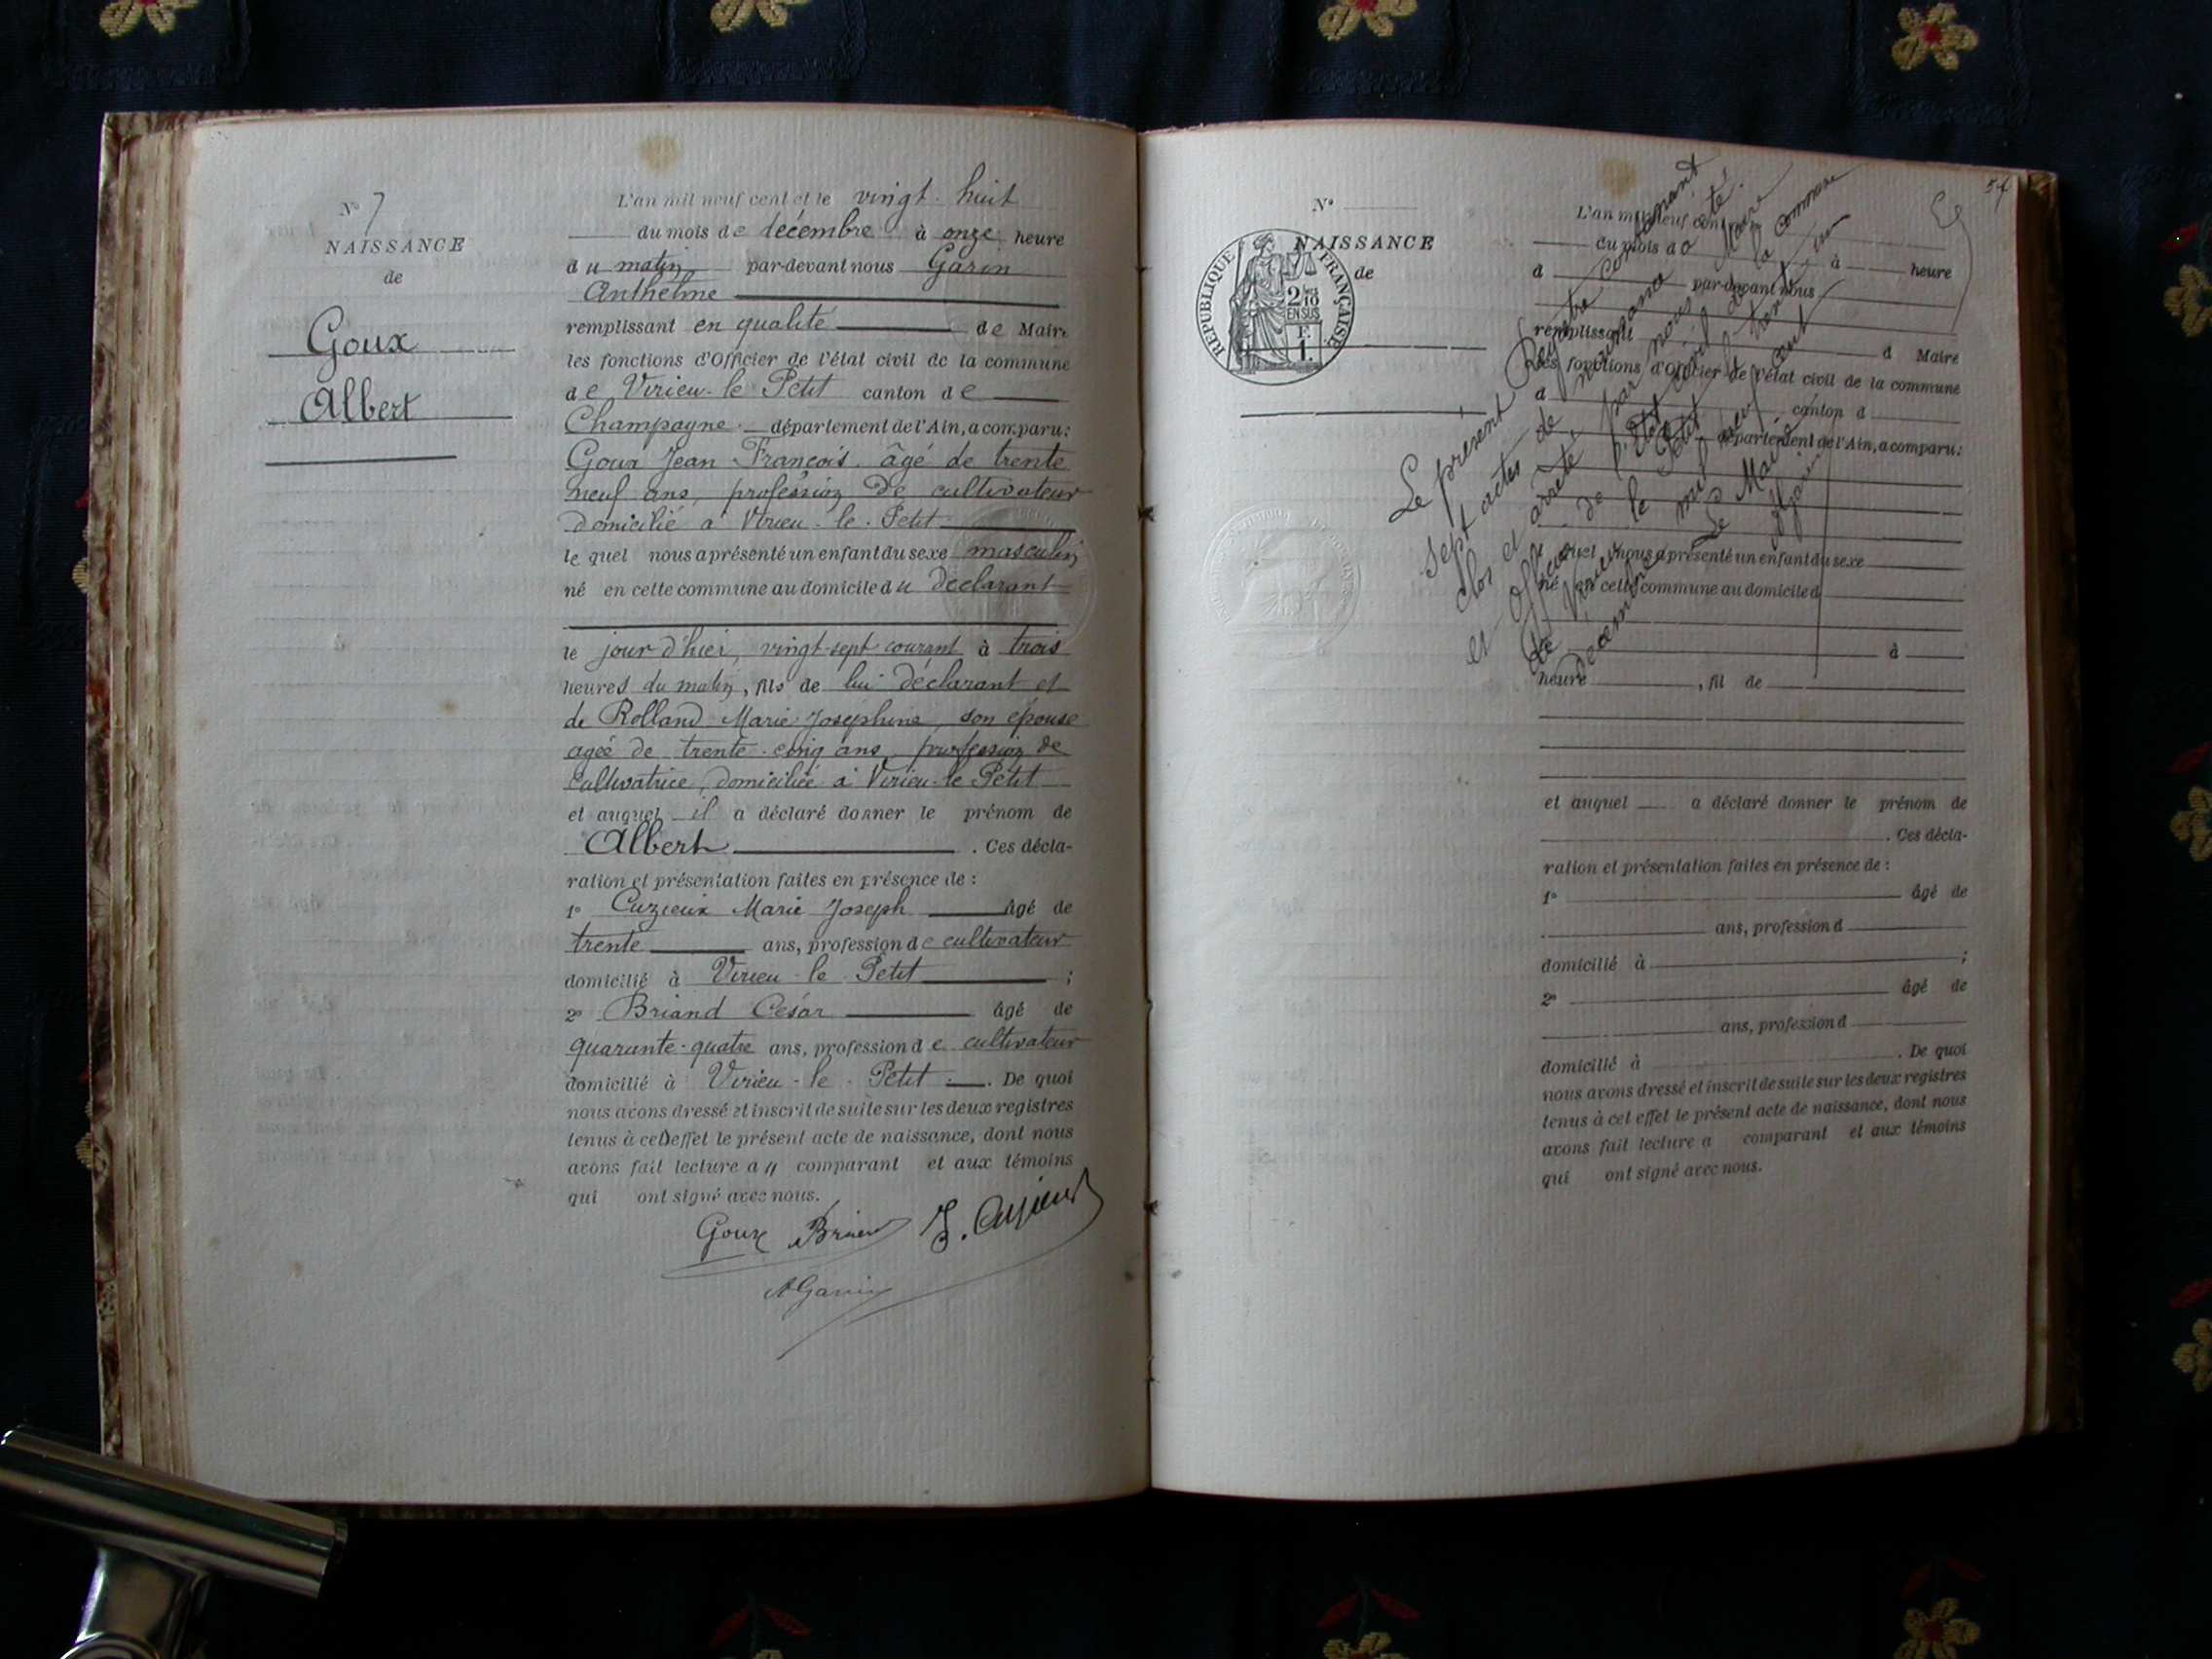 N° 7
NAISSANCE
de
Goux
Albert
L'an mil neuf cent et le vingt-huit
du mois de décembre à onze heure
du matin par-devant nous Garin
Anthelme
remplissant en qualité de Maire
les fonctions d'Officier de l'état civil de la commune
de Virieu-le-Petit canton de
Champagne département de l'Ain, a comparu:
Goux Jean François âgé de trente
neuf ans, profession de cultivateur
domicilié à Virieu-le-Petit
lequel nous a présenté un enfant du sexe masculin
né en cette commune au domicile du déclarant
le jour d'hier, vingt-sept courant à trois
heures du matin, fils de lui déclarant et
de Rolland Marie Joséphine, son épouse
agée de trente-cinq ans, profession de
cultivatrice, domiciliée à Virieu-le-Petit
et auquel il a déclaré donner le prénom de
Albert . Ces décla-
ration et présentation faites en présence de :
1° Cuzieux Marie Joseph âgé de
trente ans, profession de cultivateur
domicilié à Virieu-le-Petit ;
2° Briand César âgé de
quarante-quatre ans, profession de cultivateur
domicilié à Virieu-le-Petit . De quoi
nous avons dressé et inscrit de suite sur les deux registres
tenus à cet effet le présent acte de naissance, dont nous
avons fait lecture au comparant et aux témoins
qui ont signé avec nous.
Goux Briand J. Cuzieux
A Garin
54
N°
NAISSANCE
de
RÉPUBLIQUE FRANÇAISE
2/10
EN SUS
F.
1.
L'an mil neuf cent
du mois d à heure
d par-devant nous
remplissant d Maire
les fonctions d'Officier de l'état civil de la commune
d canton d
département de l'Ain, a comparu:
quel nous a présenté un enfant du sexe
né en cette commune au domicile d
le à
heure , fil de
et auquel a déclaré donner le prénom de
. Ces décla-
ration et présentation faites en présence de :
1° âgé de
ans, profession d
domicilié à ;
2° âgé de
ans, profession d
domicilié à . De quoi
nous avons dressé et inscrit de suite sur les deux registres
tenus à cet effet le présent acte de naissance, dont nous
avons fait lecture a comparant et aux témoins
qui ont signé avec nous.
Le présent Registre contenant
sept actes de naissance a été
clos et arrêté par nous Maire
et Officier de l'état civil de la commune
de Virieu-le-Petit le trente un
décembre mil neuf cent
Le Maire
A Garin